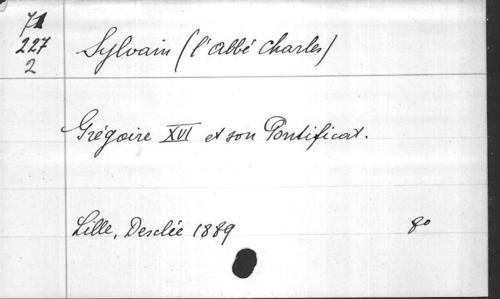 71
227
2
Sylvain (l'abbé Charles)
Grégoire XVI et son Pontificat.
Lille, Desclée 1889
8o